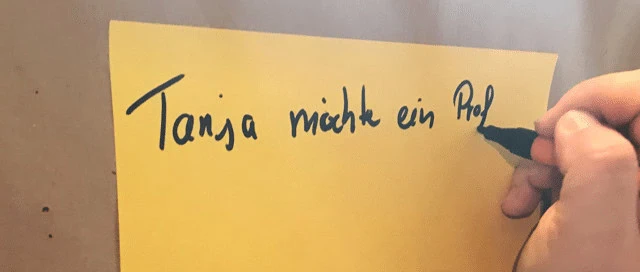 Tanja möchte ein Prof